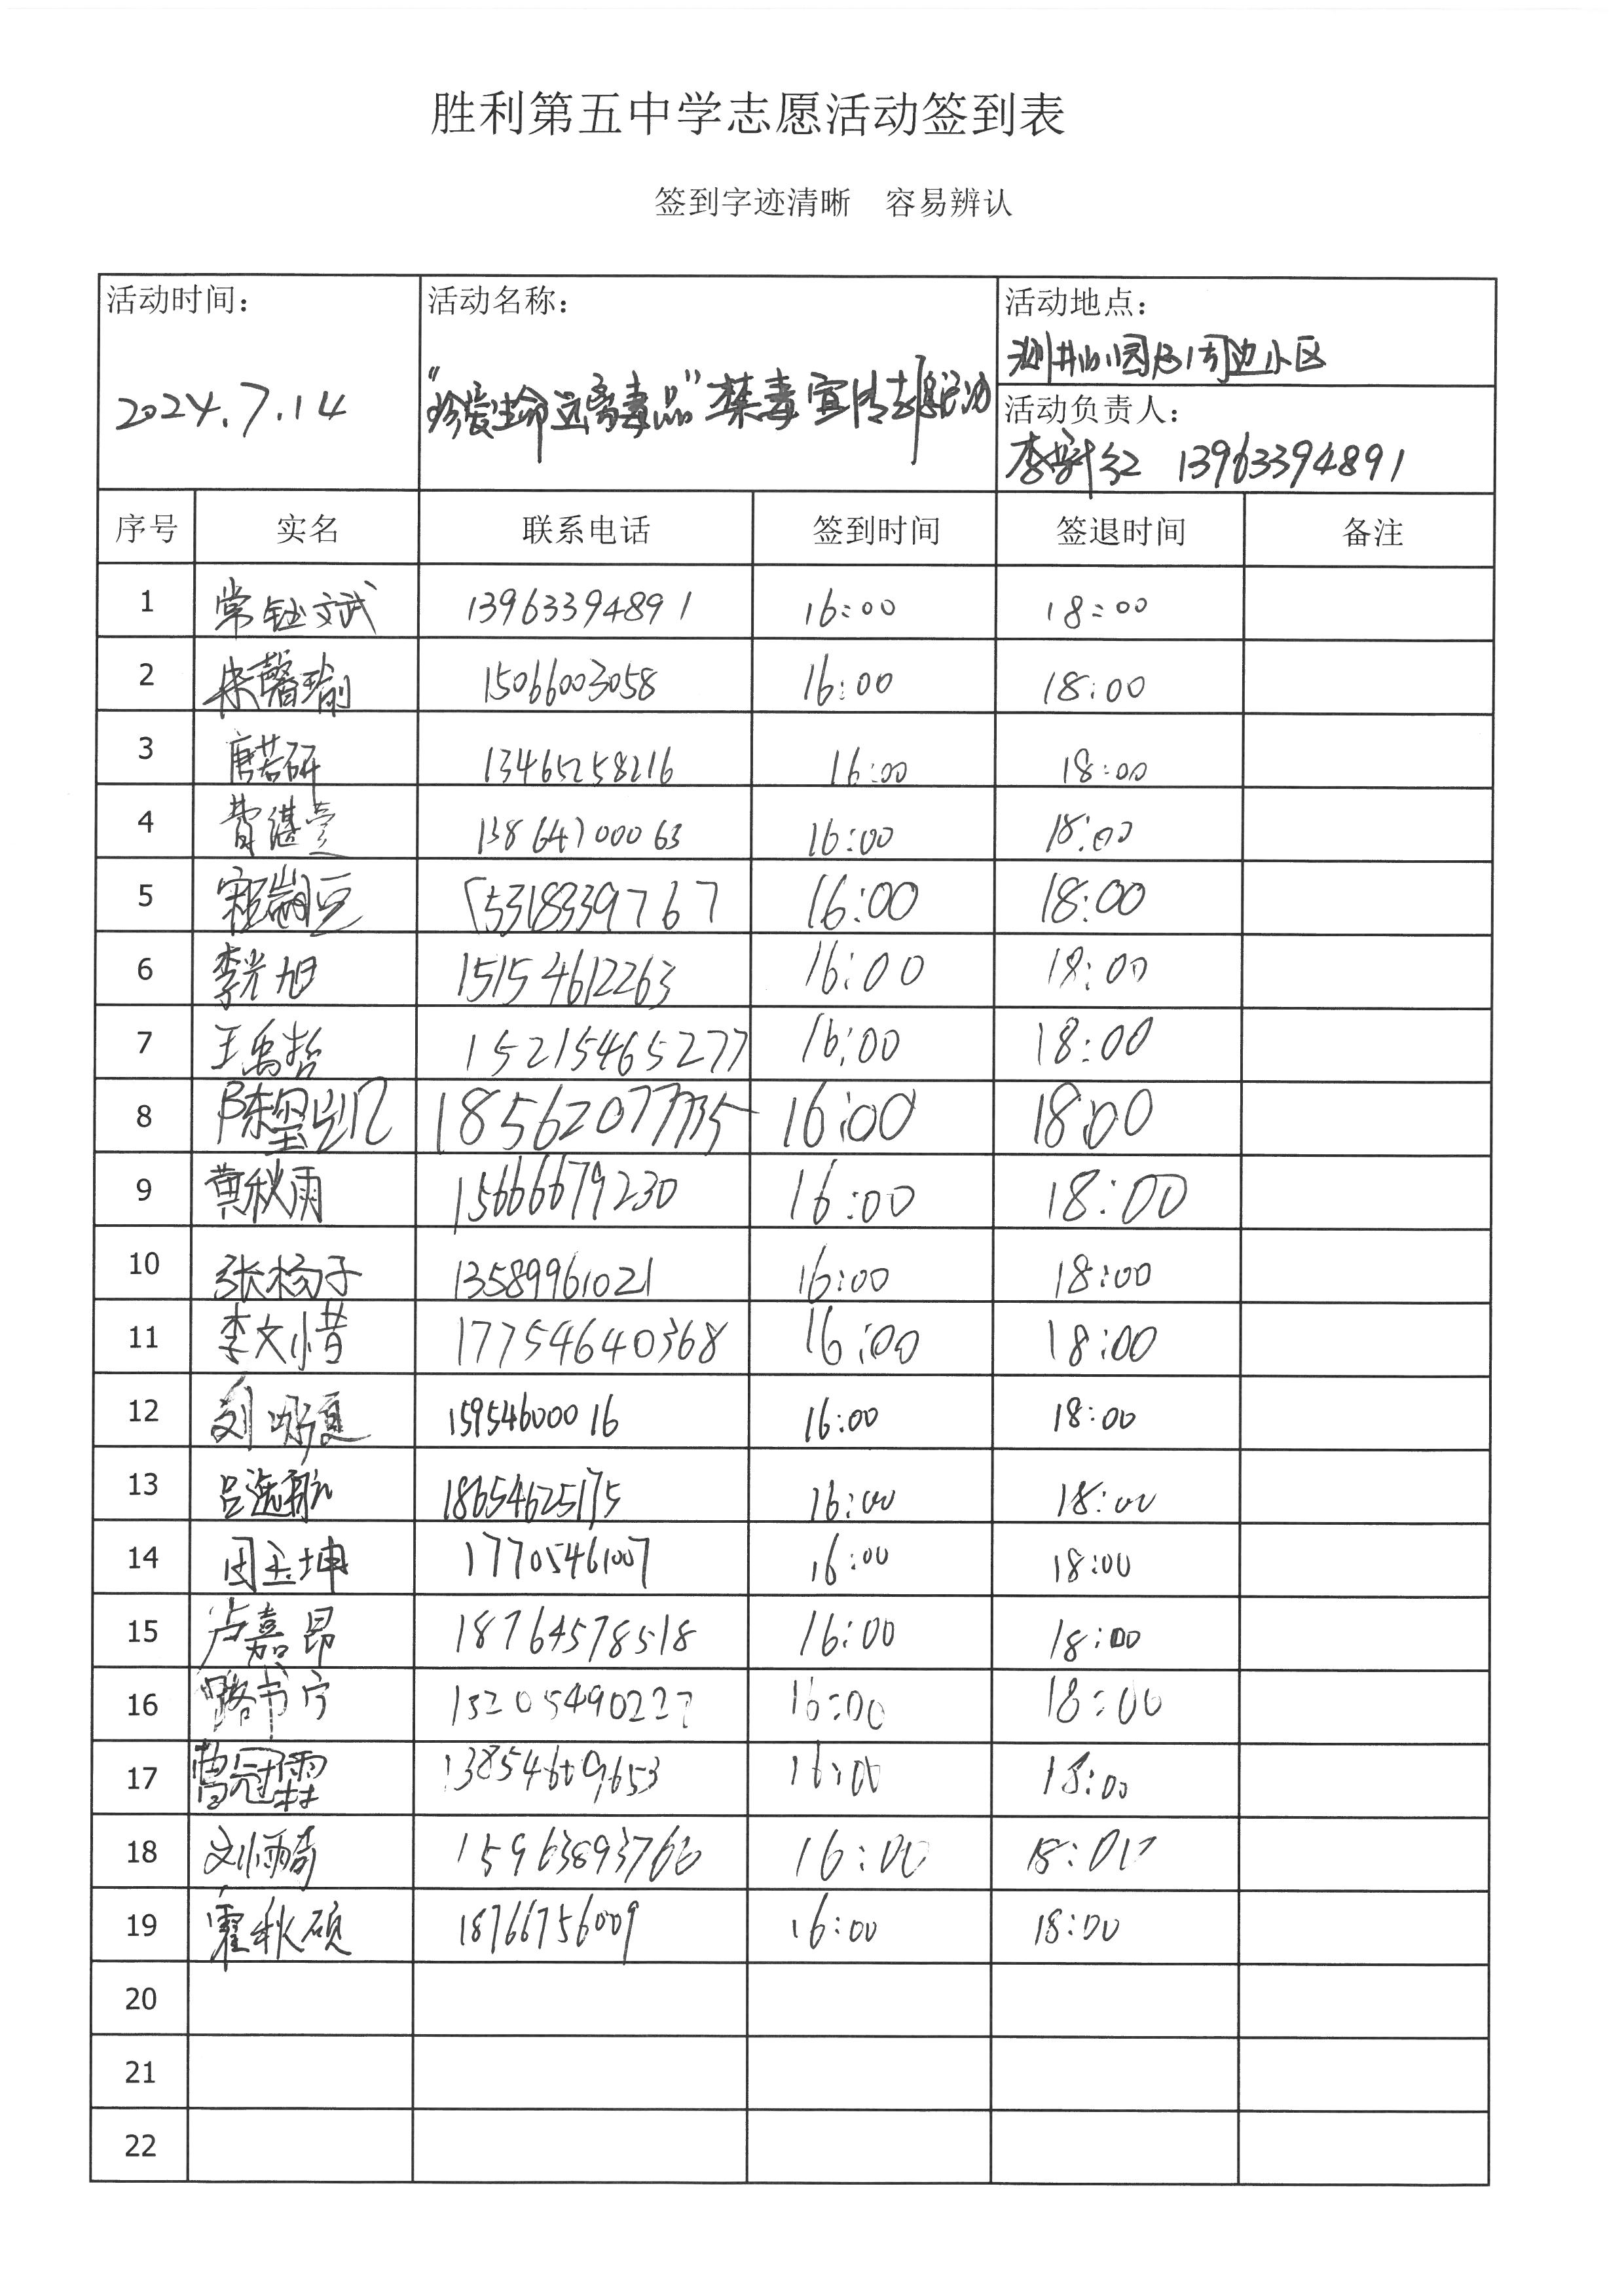 胜利第五中学志愿活动签到表
签到字迹清晰 容易辨认
活动时间: 活动名称: 活动地点:
测井公园及周边小区
2024.7.14 “珍爱生命远离毒品”禁毒宣传志愿活动
活动负责人:
李新红 13963394891
序号 实名 联系电话 签到时间 签退时间 备注
1 常钰文武 13963394891 16:00 18:00
2 宋馨瑜 15066003058 16:00 18:00
3 唐若研 13465258216 16:00 18:00
4 曹湛莹 13864700063 16:00 18:00
5 15318339767 16:00 18:00
6 李光旭 15154612263 16:00 18:00
7 王禹哲 15215465277 16:00 18:00
8 陈墨屹 18562077735 16:00 18:00
9 黄秋雨 15666679230 16:00 18:00
10 张杨子 13589961021 16:00 18:00
11 李文惜 17754640368 16:00 18:00
12 刘 15954600016 16:00 18:00
13 吕逸航 18654625175 16:00 18:00
14 田玉坤 17705461007 16:00 18:00
15 卢嘉昂 18764578518 16:00 18:00
16 路书宁 13205490227 16:00 18:00
17 曹冠霖 13854609653 16:00 18:00
18 刘雨奇 15963893766 16:00 18:00
19 霍秋硕 18766756009 16:00 18:00
20
21
22